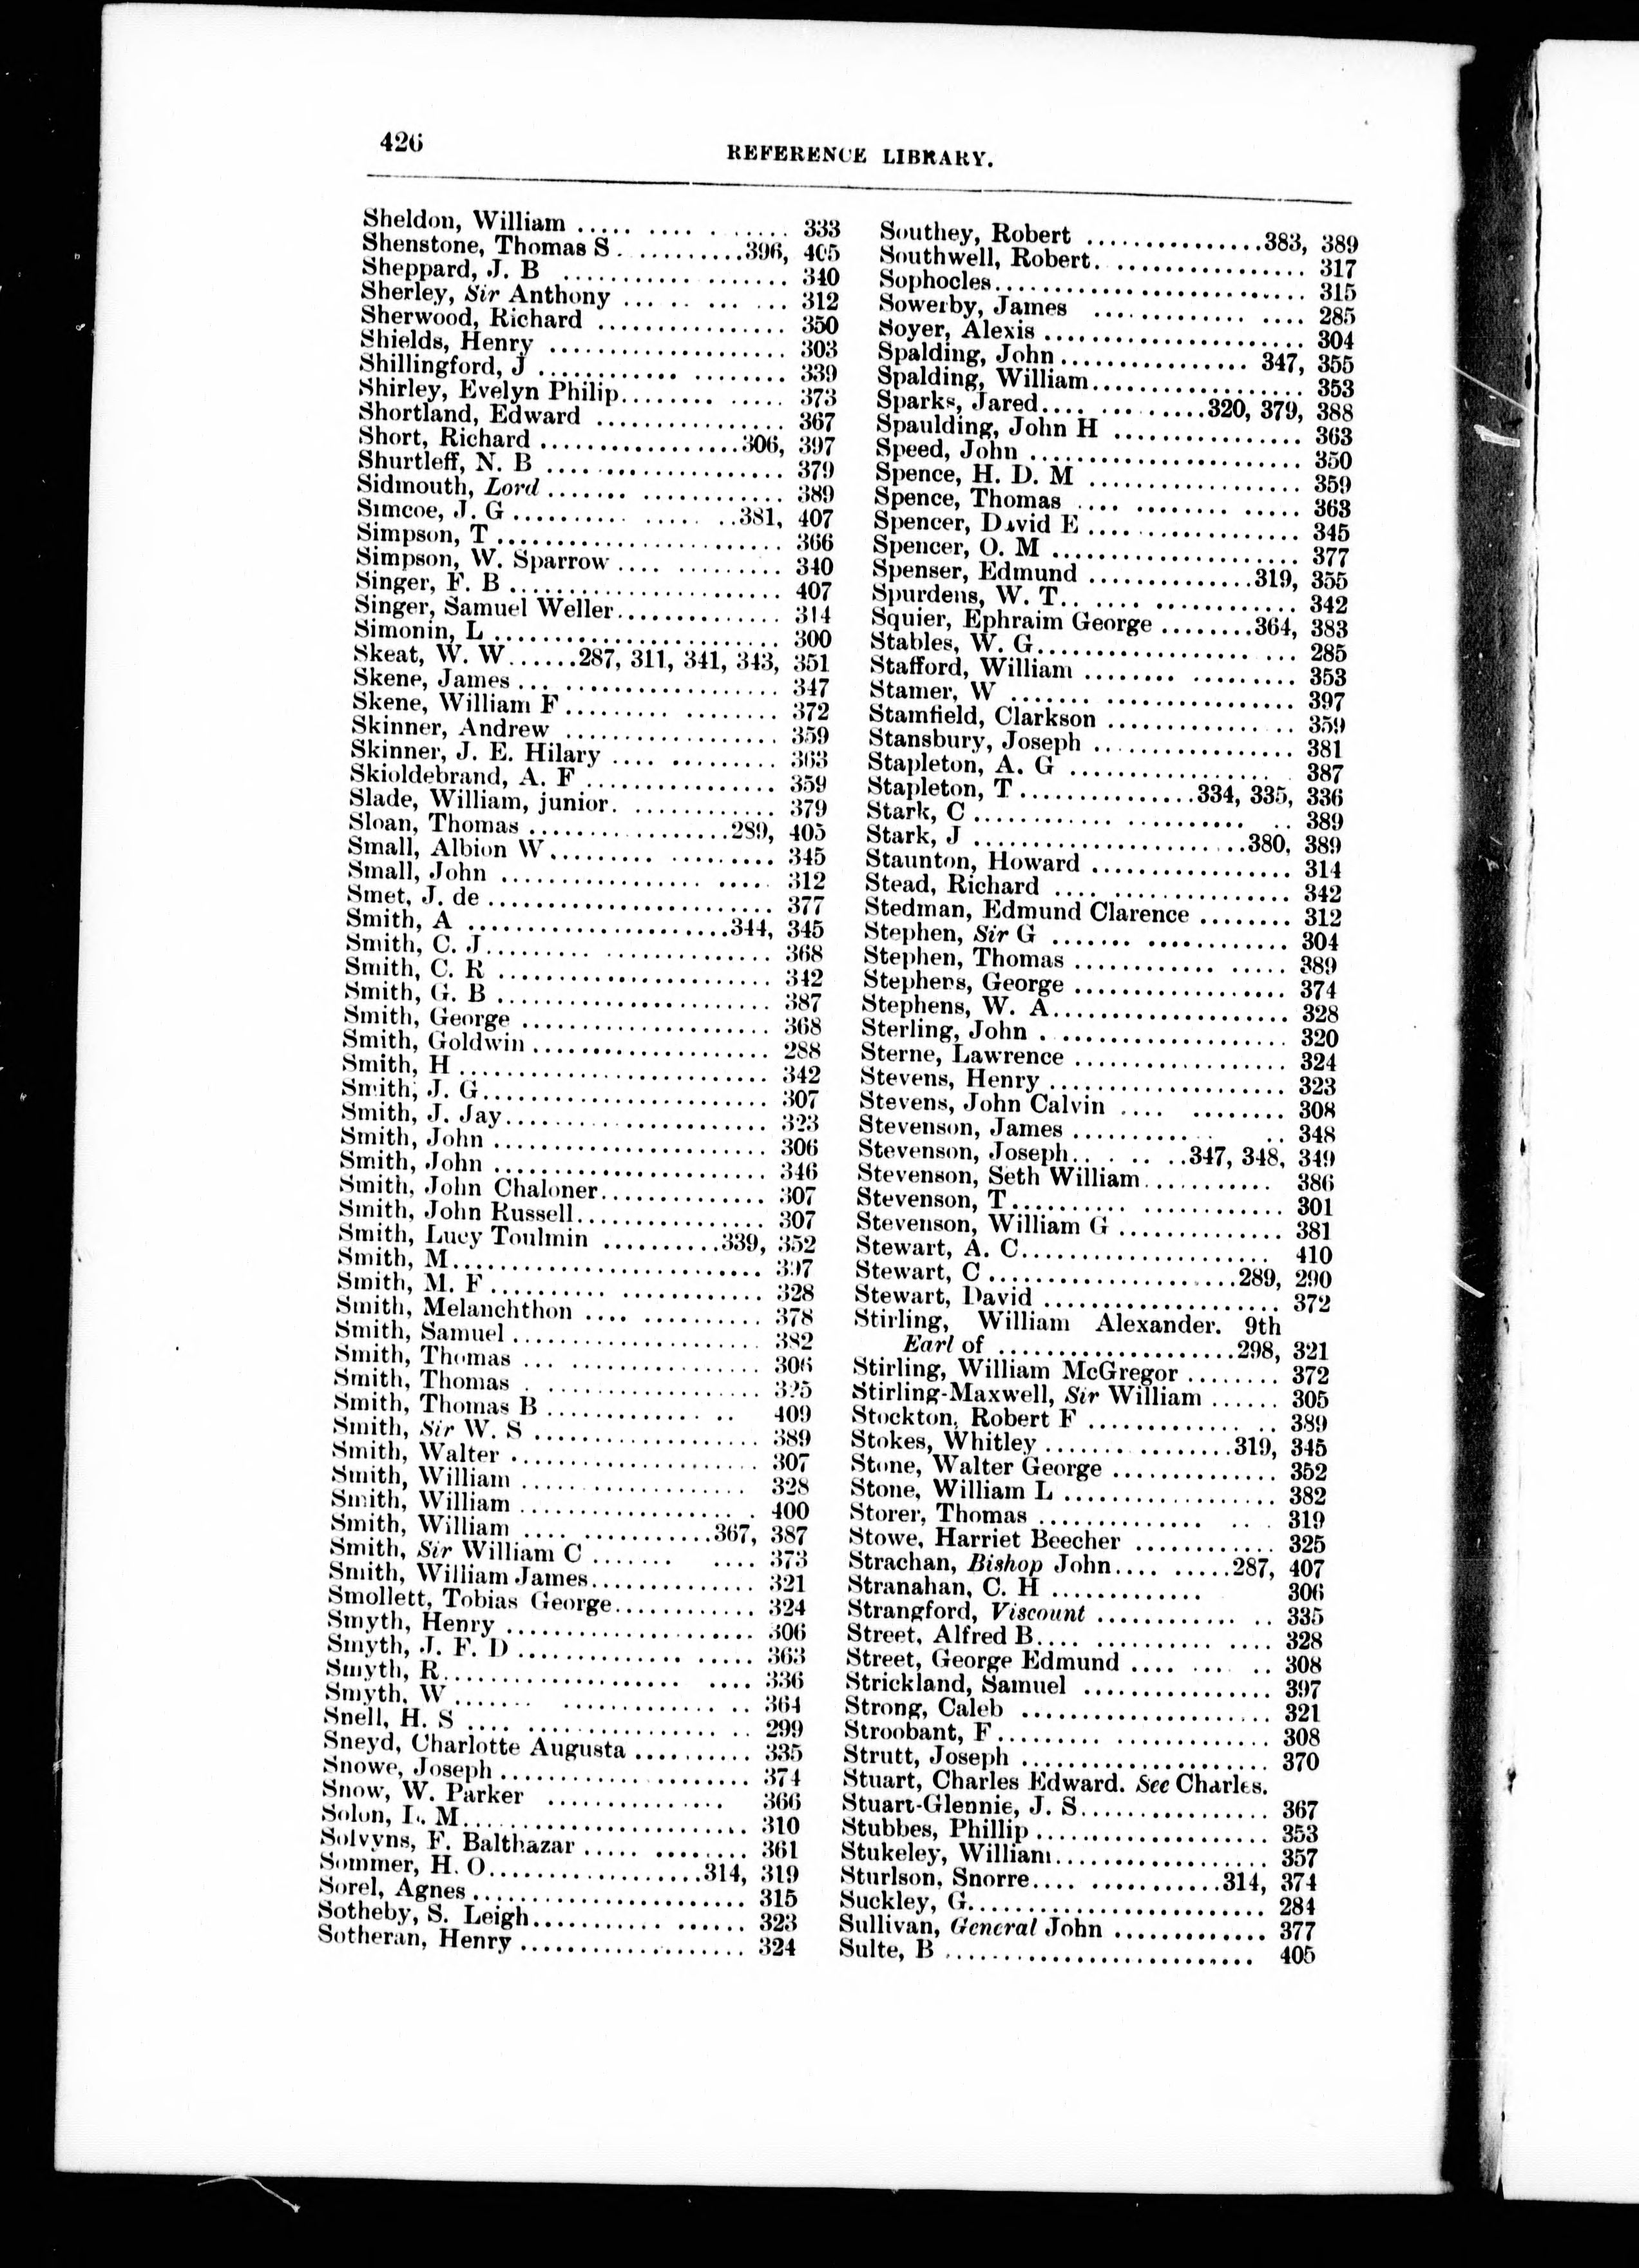 426
REFERENCE LIBRARY.
Sheldon, William ..... .... . ...... 333
Shenstone, Thomas S. ..........396, 405
Sheppard, J. B ................... 340
Sherley, Sir Anthony .... .. ... ... 312
Sherwood, Richard ................ 350
Shields, Henry .................... 303
Shillingford, J ............ ........ 339
Shirley, Evelyn Philip........ ..... 373
Shortland, Edward ................ 367
Short, Richard .................306, 397
Shurtleff, N. B .................... 379
Sidmouth, Lord ....... ............ 389
Simcoe, J. G .......... ...... ..381, 407
Simpson, T ........................ 366
Simpson, W. Sparrow .... ......... 340
Singer, F. B ....................... 407
Singer, Samuel Weller.............. 314
Simonin, L ........................ 300
Skeat, W. W......287, 311, 341, 343, 351
Skene, James ... .................. 347
Skene, William F ......... ........ 372
Skinner, Andrew .................. 359
Skinner, J. E. Hilary .... ......... 363
Skioldebrand, A. F ................ 359
Slade, William, junior. ............ 379
Sloan, Thomas .................289, 405
Small, Albion W......... ......... 345
Small, John ................. ..... 312
Smet, J. de ........................ 377
Smith, A ......................344, 345
Smith, C. J......... .............. 368
Smith, C. R ....................... 342
Smith, G. B ....................... 387
Smith, George ..................... 368
Smith, Goldwin .................... 288
Smith, H .......................... 342
Smith, J. G........................ 307
Smith, J. Jay...................... 323
Smith, John ....................... 306
Smith, John ....................... 346
Smith, John Chaloner.............. 307
Smith, John Russell................ 307
Smith, Lucy Toulmin ..........339, 352
Smith, M.......................... 397
Smith, M. F .......... ............ 328
Smith, Melanchthon .... .......... 378
Smith, Samuel ..................... 382
Smith, Thomas ... ................ 306
Smith, Thomas . .................. 325
Smith, Thomas B .............. .. 409
Smith, Sir W. S ................... 389
Smith, Walter ..................... 307
Smith, William ................... 328
Smith, William .................. . 400
Smith, William .... ...........367, 387
Smith, Sir William C ....... .... 373
Smith, William James.............. 321
Smollett, Tobias George............ 324
Smyth, Henry ..................... 306
Smyth, J. F. D .............. ..... 363
Smyth, R.................... .... 336
Smyth. W ....... ................ 364
Snell, H. S .... ................ .. 299
Sneyd, Charlotte Augusta .......... 335
Snowe, Joseph ..................... 374
Snow, W. Parker ............... 366
Solon, L. M........................ 310
Solvyns, F. Balthazar ..... ........ 361
Sommer, H. O..................314, 319
Sorel, Agnes ....................... 315
Sotheby, S. Leigh........... ...... 323
Sotheran, Henry ................... 324
Southey, Robert ...............383, 389
Southwell, Robert. ................ 317
Sophocles.......................... 315
Sowerby, James ............. .... 285
Soyer, Alexis ...................... 304
Spalding, John ................ 347, 355
Spalding, William.................. 353
Sparks, Jared.... ... ......320, 379, 388
Spaulding, John H ................ 363
Speed, John ....................... 350
Spence, H. D. M .................. 359
Spence, Thomas .... ........ ..... 363
Spencer, David E .................. 345
Spencer, O. M ..................... 377
Spenser, Edmund ..............319, 355
Spurdens, W. T.. .... ............ 342
Squier, Ephraim George ........364, 383
Stables, W. G.................. ... 285
Stafford, William ........ ......... 353
Stamer, W ....... ................ 397
Stamfield, Clarkson ............. .. 359
Stansbury, Joseph ................. 381
Stapleton, A. G .................. 387
Stapleton, T ...............334, 335, 336
Stark, C ............ .......... .. 389
Stark, J .......................380, 389
Staunton, Howard ................. 314
Stead, Richard .... ............... 342
Stedman, Edmund Clarence ........ 312
Stephen, Sir G ....... ............ 304
Stephen, Thomas ............ ..... 389
Stephens, George .................. 374
Stephens, W. A.................... 328
Sterling, John ..................... 320
Sterne, Lawrence .................. 324
Stevens, Henry .................... 323
Stevens, John Calvin .... ........ 308
Stevenson, James ............ .. 348
Stevenson, Joseph.. . .. ..347, 348, 349
Stevenson, Seth William........... 386
Stevenson, T.......... ............ 301
Stevenson, William G .............. 381
Stewart, A. C..................... 410
Stewart, C .....................289, 290
Stewart, David .................... 372
Stirling, William Alexander. 9th
Earl of ....................298, 321
Stirling, William McGregor ........ 372
Stirling-Maxwell, Sir William ...... 305
Stockton, Robert F ............. .. 389
Stokes, Whitley ....... ........319, 345
Stone, Walter George .............. 352
Stone, William L .................. 382
Storer, Thomas .............. ... 319
Stowe, Harriet Beecher ............ 325
Strachan, Bishop John.... .....287, 407
Stranahan, C. H ............. 306
Strangford, Viscount ............ .. 335
Street, Alfred B.... .......... .... 328
Street, George Edmund .... ... .. 308
Strickland, Samuel ................ 397
Strong, Caleb ..................... 321
Stroobant, F ......... ............ 308
Strutt, Joseph ..................... 370
Stuart, Charles Edward. See Charles.
Stuart-Glennie, J. S................ 367
Stubbes, Phillip .................... 353
Stukeley, William.................. 357
Sturlson, Snorre.... ...........314, 374
Suckley, G......................... 284
Sullivan, General John ............. 377
Sulte, B .......................... 405